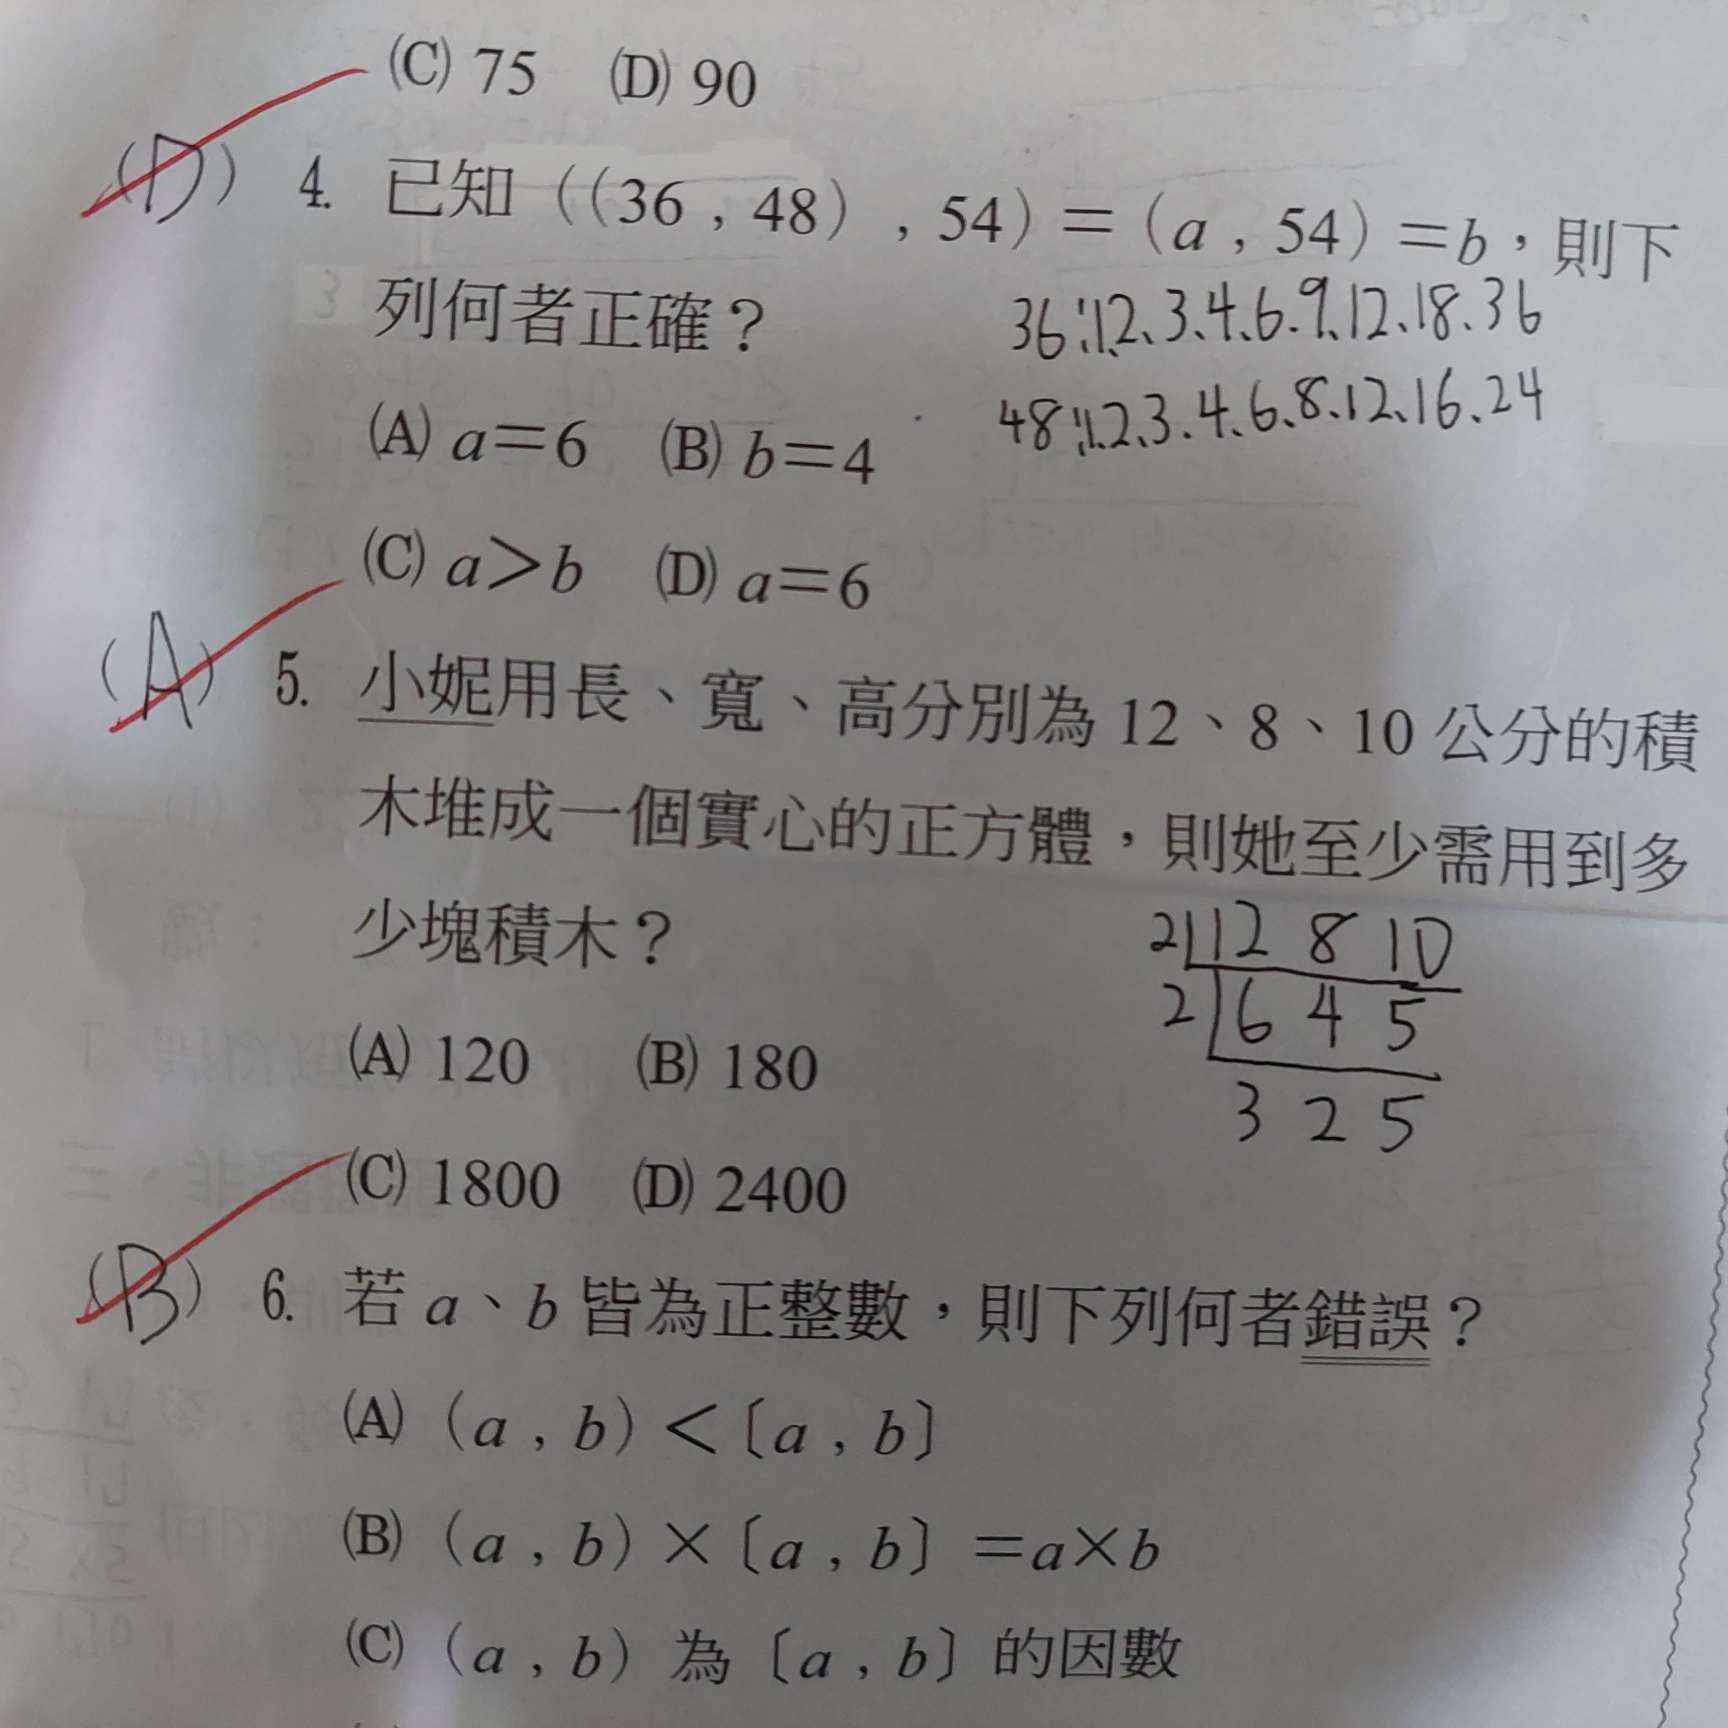 (C) 75 (D) 90
(D) 4. 已知((36,48),54)=(a,54)=b,則下
列何者正確?
36:1.2、3.4、6.9、12、18、36
48:1.2、3.4、6、8、12、16、24
(A) a=6 (B) b=4
(C) a>b (D) a=6
(A) 5. 小妮用長、寬、高分別為 12、8、10 公分的積
木堆成一個實心的正方體,則她至少需用到多
少塊積木?
2|12 8 10
2|6 4 5
3 2 5
(A) 120 (B) 180
(C) 1800 (D) 2400
(B) 6. 若 a、b 皆為正整數,則下列何者錯誤?
(A) (a,b)<〔a,b〕
(B) (a,b)×〔a,b〕=a×b
(C) (a,b)為〔a,b〕的因數